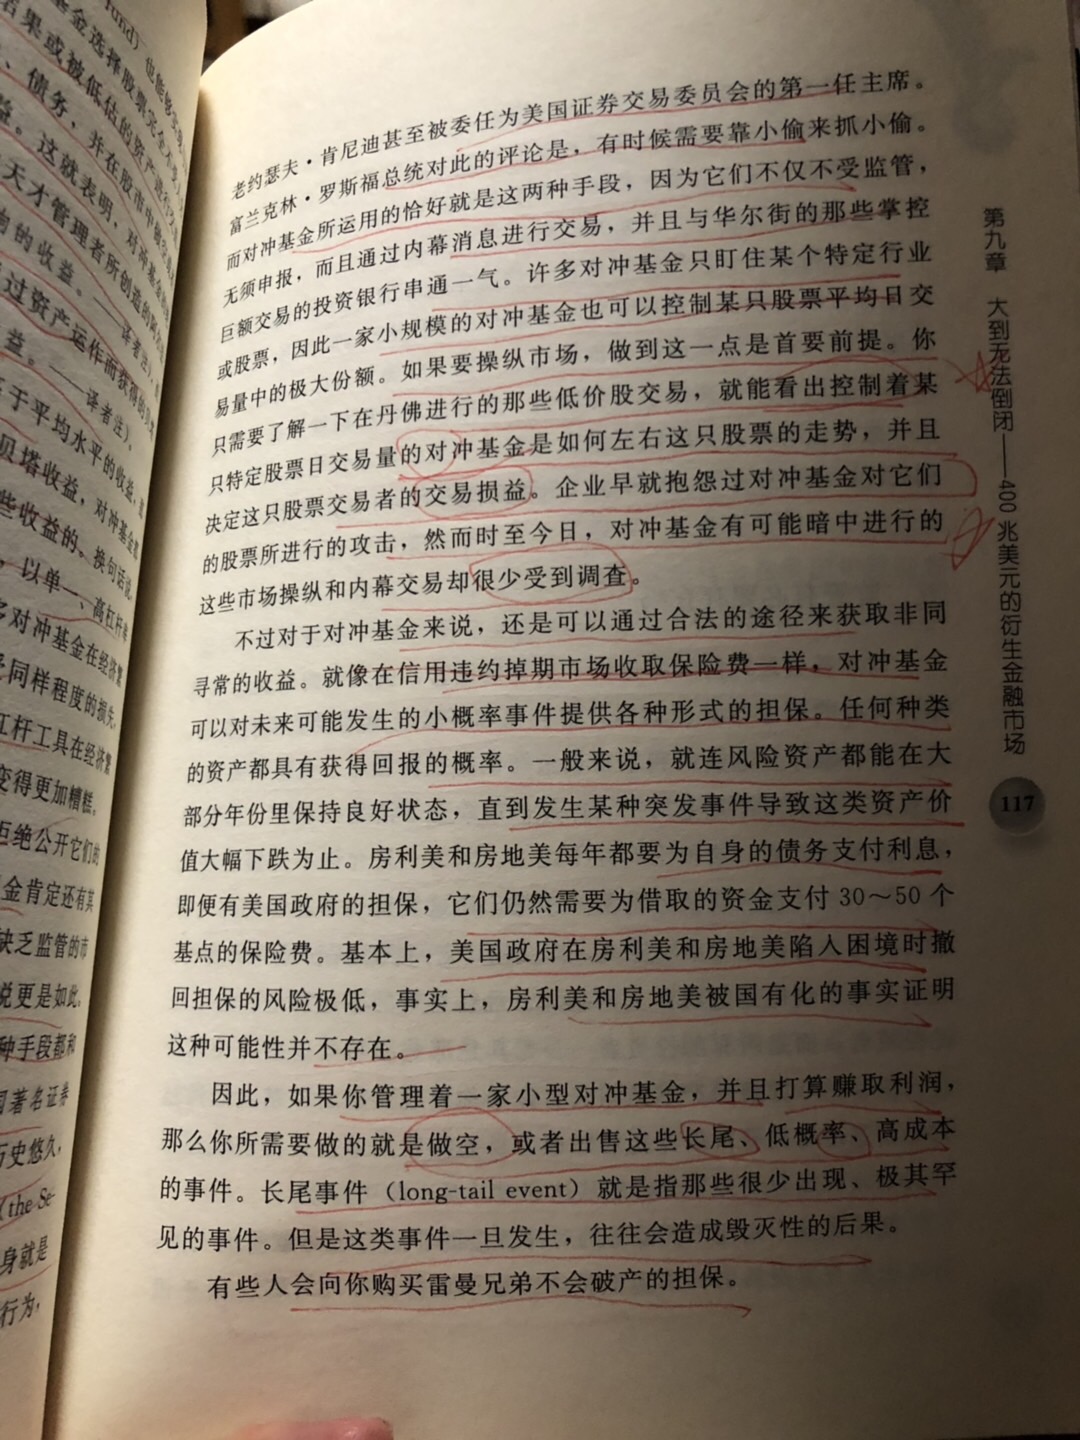 fund）也能够
基金选择股票完全不
结果或被低估的资产进行
、债务，并在股市中
益。这就表明，对冲基金的
天才管理者所创造的高
的收益。——译者注），
过资产运作而获得的
益。——译者注）。
于平均水平的收益，
贝塔收益，对冲基金
些收益的。换句话说，
，以单一、高杠杆
多对冲基金在经济繁
受同样程度的损失，
杠杆工具在经济繁
变得更加糟糕。
拒绝公开它们的
金肯定还有其
缺乏监管的市
说更是如此。
种手段都和
国著名证券
历史悠久，
（the Se-
身就是
行为，
老约瑟夫·肯尼迪甚至被委任为美国证券交易委员会的第一任主席。
富兰克林·罗斯福总统对此的评论是，有时候需要靠小偷来抓小偷。
而对冲基金所运用的恰好就是这两种手段，因为它们不仅不受监管，
无须申报，而且通过内幕消息进行交易，并且与华尔街的那些掌控
巨额交易的投资银行串通一气。许多对冲基金只盯住某个特定行业
或股票，因此一家小规模的对冲基金也可以控制某只股票平均日交
易量中的极大份额。如果要操纵市场，做到这一点是首要前提。你
只需要了解一下在丹佛进行的那些低价股交易，就能看出控制着某
只特定股票日交易量的对冲基金是如何左右这只股票的走势，并且
决定这只股票交易者的交易损益。企业早就抱怨过对冲基金对它们
的股票所进行的攻击，然而时至今日，对冲基金有可能暗中进行的
这些市场操纵和内幕交易却很少受到调查。
不过对于对冲基金来说，还是可以通过合法的途径来获取非同
寻常的收益。就像在信用违约掉期市场收取保险费一样，对冲基金
可以对未来可能发生的小概率事件提供各种形式的担保。任何种类
的资产都具有获得回报的概率。一般来说，就连风险资产都能在大
部分年份里保持良好状态，直到发生某种突发事件导致这类资产价
值大幅下跌为止。房利美和房地美每年都要为自身的债务支付利息，
即便有美国政府的担保，它们仍然需要为借取的资金支付 30～50 个
基点的保险费。基本上，美国政府在房利美和房地美陷入困境时撤
回担保的风险极低，事实上，房利美和房地美被国有化的事实证明
这种可能性并不存在。
因此，如果你管理着一家小型对冲基金，并且打算赚取利润，
那么你所需要做的就是做空，或者出售这些长尾、低概率、高成本
的事件。长尾事件（long-tail event）就是指那些很少出现、极其罕
见的事件。但是这类事件一旦发生，往往会造成毁灭性的后果。
有些人会向你购买雷曼兄弟不会破产的担保。
第九章 大到无法倒闭——400 兆美元的衍生金融市场
117